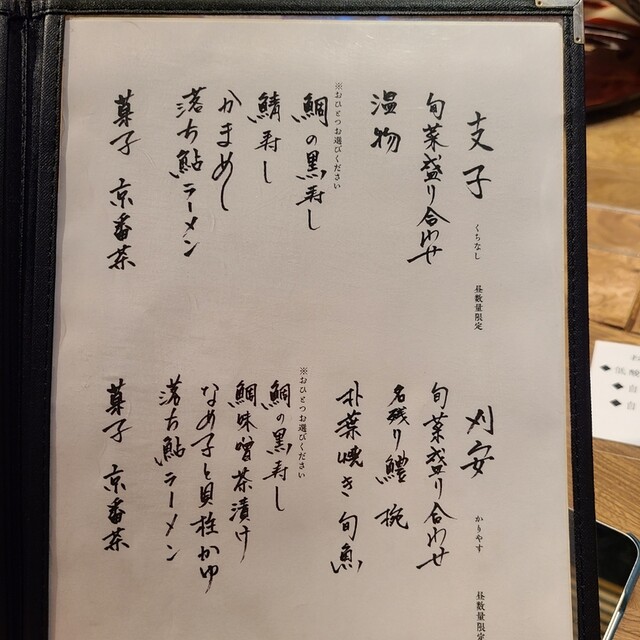 支子 くちなし 昼数量限定
旬菜盛り合わせ
温物
※おひとつお選びください
鯛の黒寿し
鯖寿し
かまめし
落ち鮎ラーメン
菓子 京番茶
刈安 かりやす 昼数量限定
旬菜盛り合わせ
名残り鱧 椀
朴葉焼き 旬魚
※おひとつお選びください
鯛の黒寿し
鯛味噌茶漬け
なめ子と貝柱かゆ
落ち鮎ラーメン
菓子 京番茶